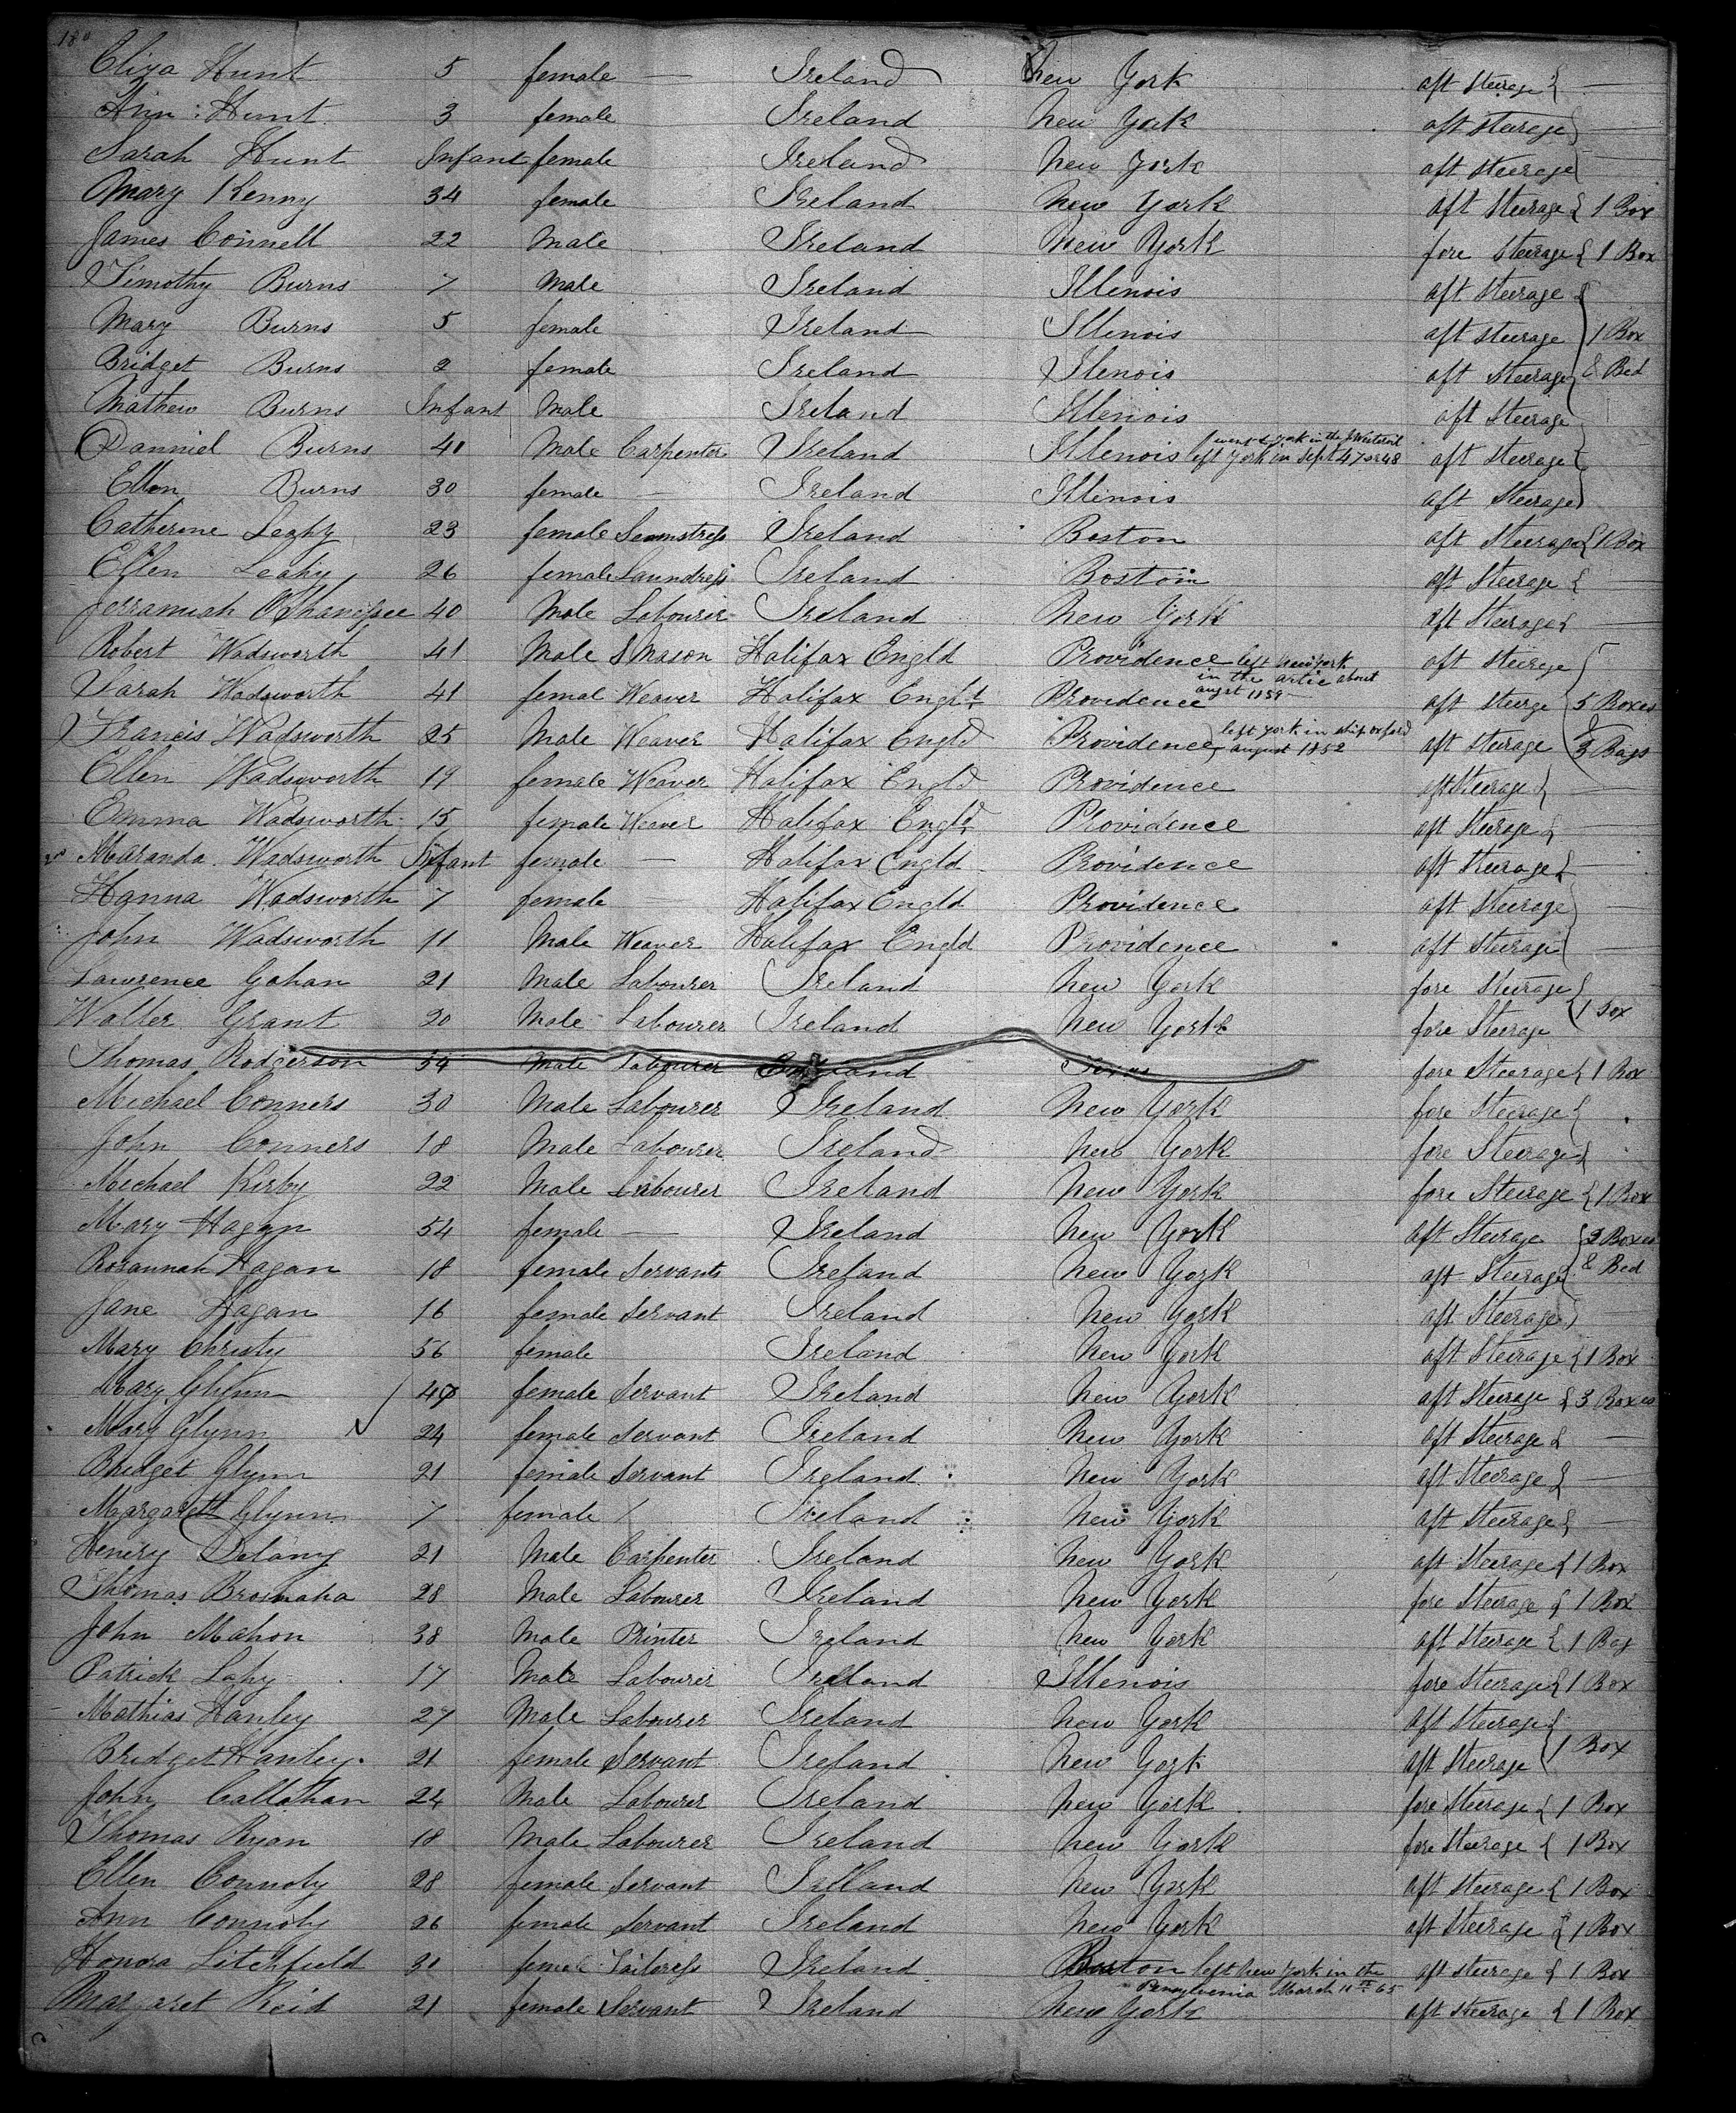 180
Eliza Hunt 5 female — Ireland New York aft Steerage { —
Ann Hunt 3 female Ireland New York aft Steerage } —
Sarah Hunt Infant female Ireland New York aft Steerage
Mary Kenny 34 female Ireland New York aft Steerage { 1 Box
James Connell 22 Male Ireland New York fore Steerage { 1 Box
Timothy Burns 7 Male Ireland Illenois aft Steerage
Mary Burns 5 female Ireland Illenois aft Steerage 1 Box
Bridget Burns 2 female Ireland Illenois aft Steerage & Bed
Mathew Burns Infant Male Ireland Illenois aft Steerage
Danniel Burns 40 Male Carpenter Ireland Illenois left York in Sept 47 or 48 aft Steerage
Ellen Burns 30 female — Ireland Illinois aft Steerage
Catherine Leahy 23 female Seamstress Ireland Boston aft Steerage { 1 Box
Ellen Leahy 26 female Laundress Ireland Boston aft Steerage {
Jerramiah 40 Male Labourer Ireland New York aft Steerage {
Robert Wadsworth 41 Male S Mason Halifax Engld Providence left New York aft Steerage
in the artic about
Sarah Wadsworth 41 femal Weaver Halifax Engld Providence augst 1859 aft Steerge 5 Boxes
Francis Wadsworth 25 Male Weaver Halifax Engld Providence left York in ship oxford august 1852 aft Steerage & 3 Bags
Ellen Wadsworth 19 female Weaver Halifax Engld Providence aft Steerage } —
Emma Wadsworth 15 female Weaver Halifax Engld Providence aft Steerage { —
Maranda Wadsworth Infant female — Halifax Engld Providence aft Steerage { —
Hanna Wadsworth 7 female — Halifax Engld Providence aft Steerage } —
John Wadsworth 11 Male Weaver Halifax Engld Providence aft Steerage } —
Lawrence Gahan 21 Male Labourer Ireland New York fore Steerage
Walter Grant 20 Male Labourer Ireland New York fore Steerage { 1 Box
Thomas Rodgerson 54 Male Labourer Texas fore Steerage { 1 Box
Michael Conners 30 Male Labourer Ireland New York fore Steerage {
John Conners 18 Male Labourer Ireland New York fore Steerage {
Michael Kirby 22 Male Labourer Ireland New York fore Steerage { 1 Box
Mary Hagan 54 female — Ireland New York aft Steerage { 2 Boxes
Rosannah Hagan 18 female Servants Ireland New York aft Steerage & Bed
Jane Hagan 16 female Servant Ireland New York aft Steerage } —
Mary Christy 56 female Ireland New York aft Steerage { 1 Box
Mary Glynn 40 female Servant Ireland New York aft Steerage { 3 Boxes
Mary Glynn 24 female Servant Ireland New York aft Steerage { —
Bridget Glynn 21 female Servant Ireland New York aft Steerage { —
Margarett Glynn 7 female / Ireland New York aft Steerage { —
Henery Delany 21 Male Carpenter Ireland New York aft Steerage { 1 Box
Thomas Brosnaha 28 Male Labourer Ireland New York fore Steerage { 1 Box
John Mahon 38 Male Printer Ireland New York aft Steerage { 1 Bag
Patrick Lahy 17 Male Labourer Ireland Illenois fore Steerage { 1 Box
Mathias Hanley 27 Male Labourer Ireland New York aft Steerage {
Bridget Hanley 21 female Servant Ireland New York aft Steerage { 1 Box
John Callahan 24 Male Labourer Ireland New York fore Steerage { 1 Box
Thomas Ryan 18 Male Labourer Ireland New York fore Steerage { 1 Box
Ellen Connoly 28 female Servant Ireland New York aft Steerage { 1 Box
Ann Connoly 26 female Servant Ireland New York aft Steerage { 1 Box
Honora Litchfield 30 female Tailoress Ireland Boston left New York in the aft Steerage { 1 Box
Pensylvenia March 11th 65
Margaret Reid 21 female Servant Ireland New York aft Steerage { 1 Box